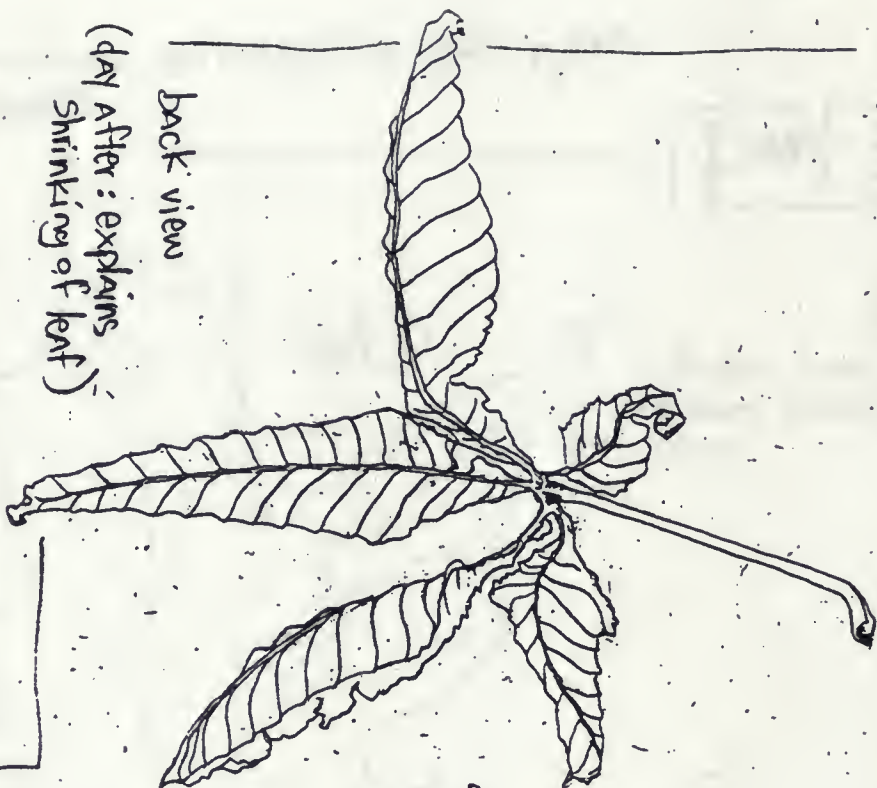 back view
(day after: explains
shrinking of leaf)